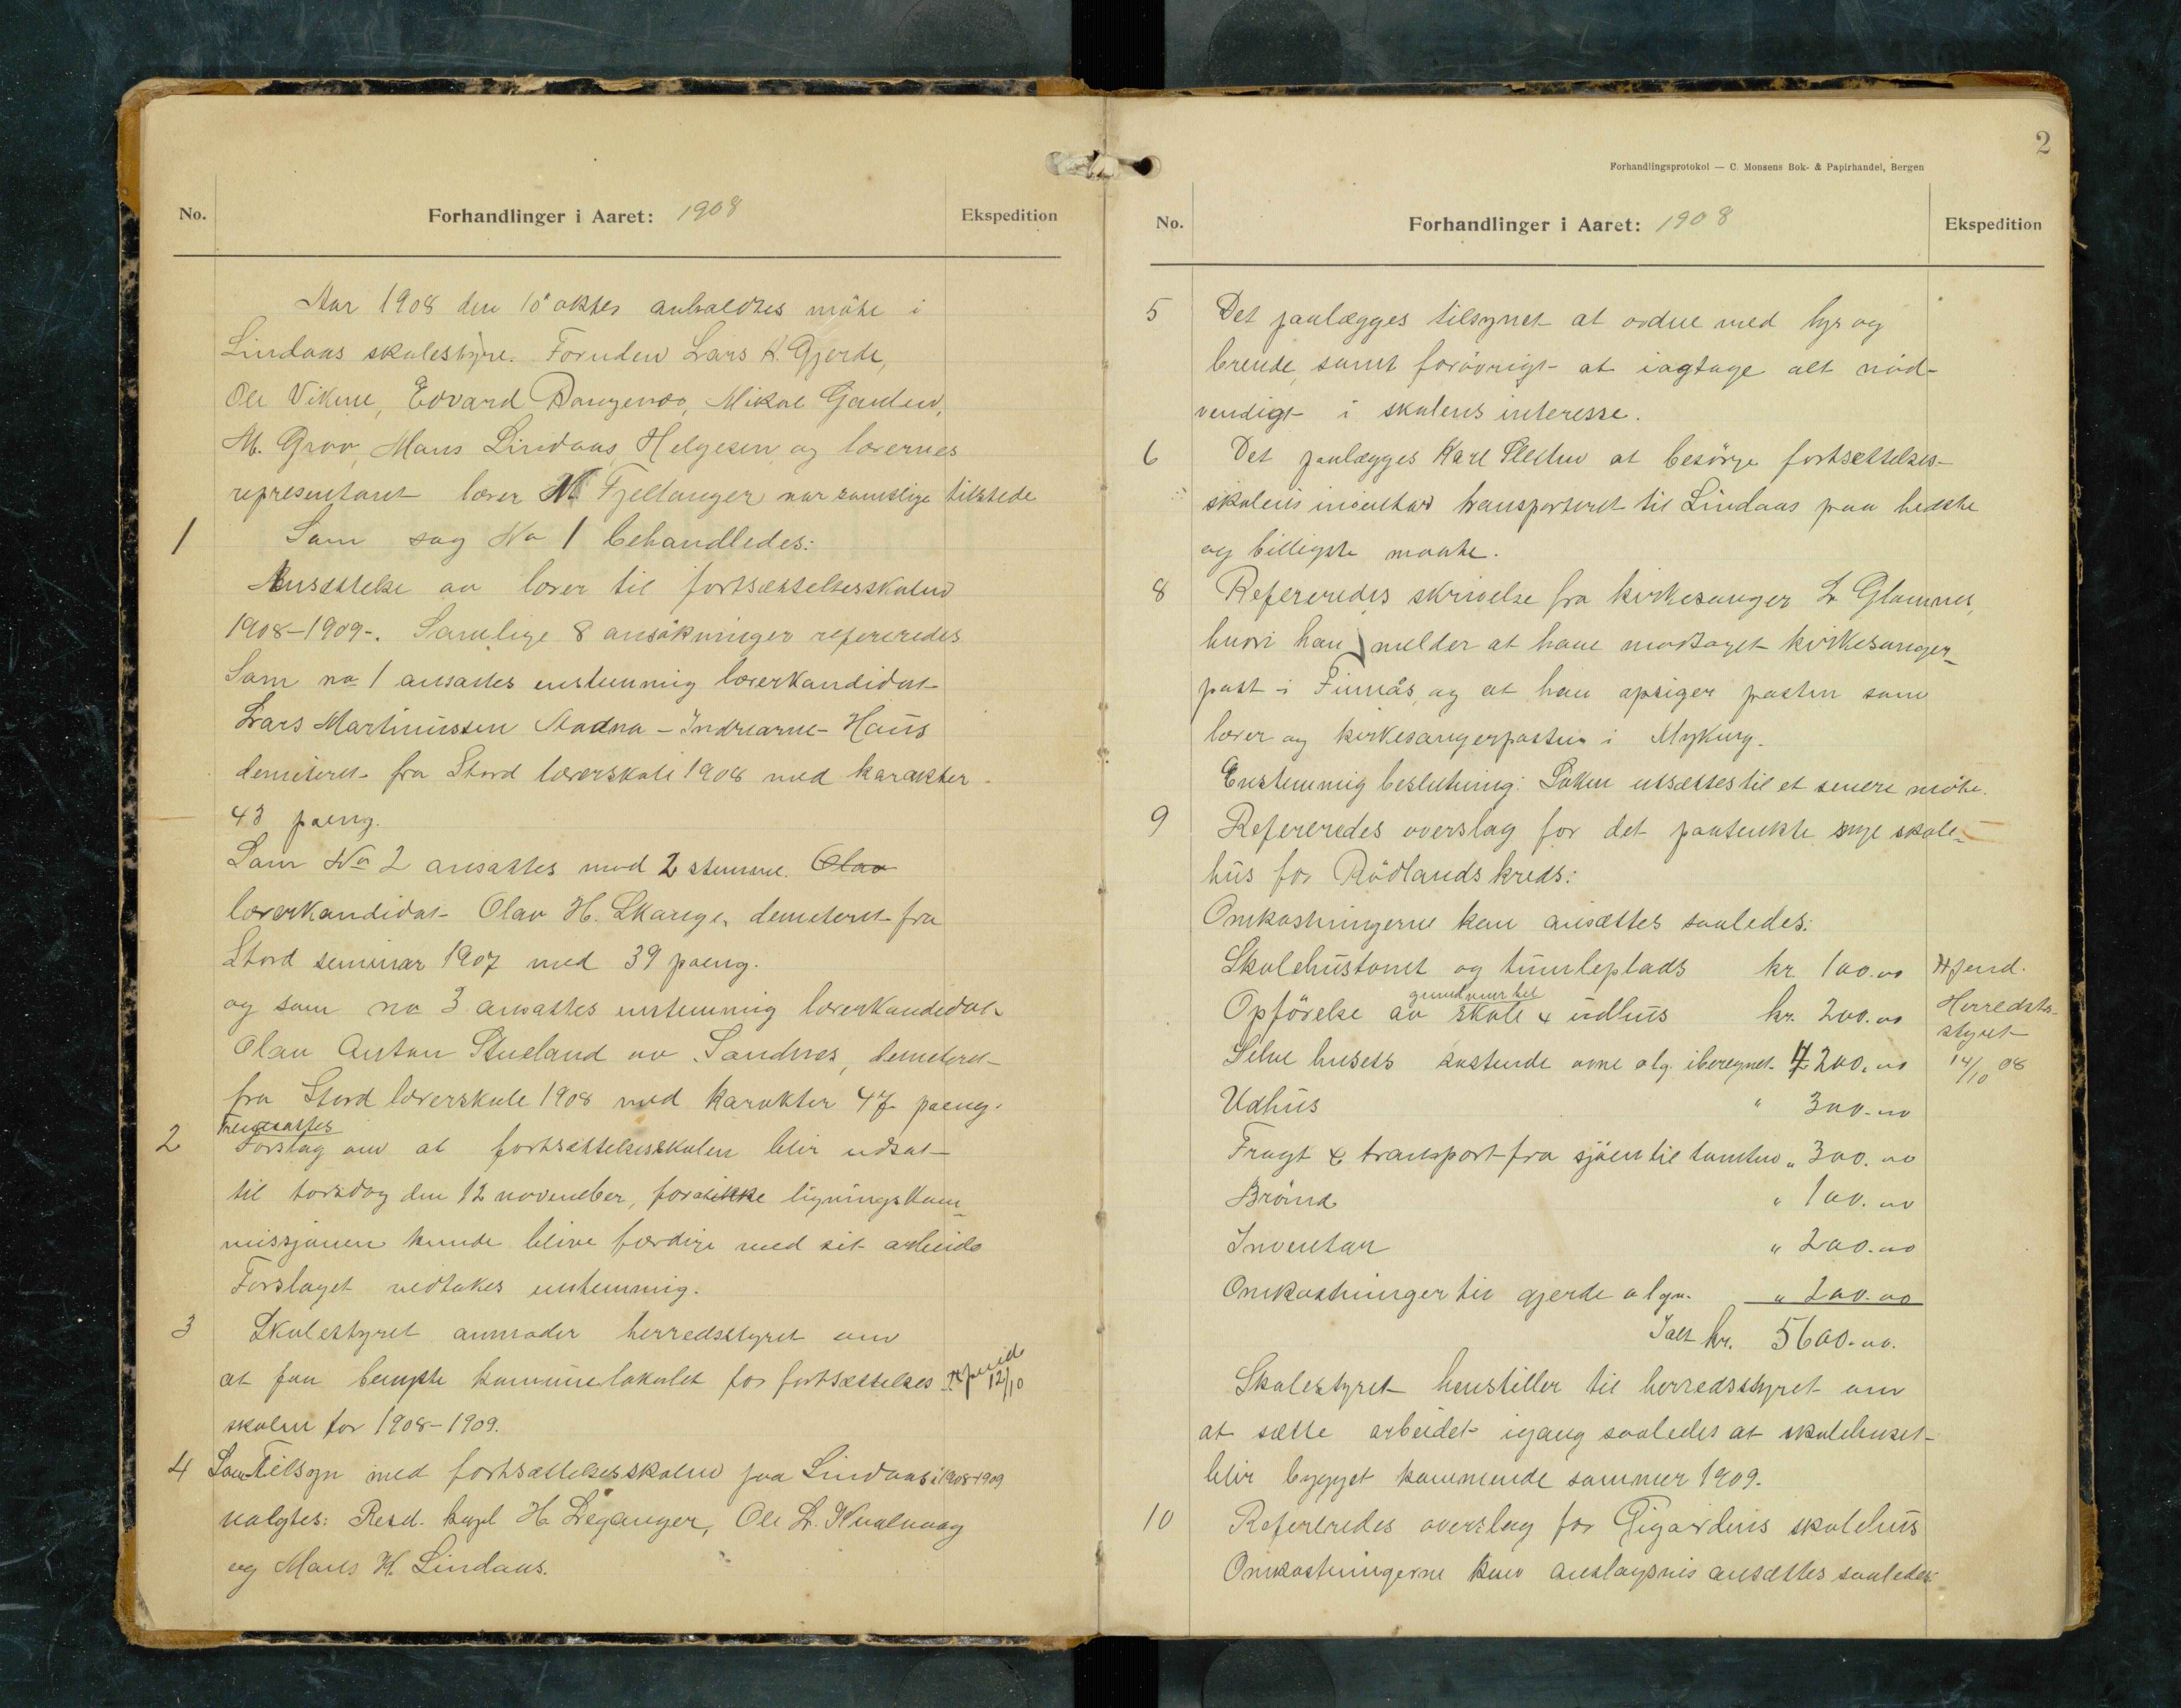 No.
Forhandlinger i Aaret: 1908
Ekspedition
Aar 1908 den 10 oktbr anholdtes möte i
Lindaas skolestyre. Foruden Lars K. Gjerde,
Ole Vikne, Edvard Dangenæs, Mikal
M. Grov, Mons Lindaas, Helgesen og lærernes
representant lærer N Fjellanger var samtlige tilstede
1 Som sag No 1 behandledes:
Ansættelse av lærer til fortsættelsesskolen
1908-1909-. Samtlige 8 ansökninger refereredes
Som no 1 ansattes enstemmig lærerkandidat
Lars Martinussen Aadna - Indrearne - Haus
demiteret fra Stord lærerskole 1908 med karakter
43 poeng.
Som No 2 ansattes mod 2 stemme. Olav
lærerkandidat Olav H. Skauge, demiteret fra
Stord seminar 1907 med 39 poeng.
og som no 3 ansattes enstemmig lærerkandidat
Olav Anton Stueland av Sandnes, demiteret
fra Stord lærerskule 1908 med karakter 47 poeng.
Fremsattes
2 Forslag om at fortsættelsesskolen blir udsat
til torsdag den 12 november, forat ikke ligningskom-
missjonen kunde blive færdige med sit arbeide
Forslaget vedtokes enstemmig.
3 Skolestyret anmoder herredsstyret om
at faa benytte kommunelokalet for fortsættelses
skolen for 1908-1909.
Expend 12/10
4 Som Tilsyn med fortsættelsesskolen paa Lindaas i 1908-1909
valgtes: Resd. kapl H. Leganger, Ole L. Kvalvaag
og Mons H. Lindaas.
2
Forhandlingsprotokol — C. Monsens Bok- & Papirhandel, Bergen
No.
Forhandlinger i Aaret: 1908
Ekspedition
5 Det paalægges tilsynet at ordne med lys og
brende, samt forövrigt at iagtage alt nöd-
vendigt i skolens interesse.
6 Det paalægges Karl Sletten at besörge fortsættelses-
skolens inventar transporteret til Lindaas paa bedste
og billigste maate.
8 Refereredes skrivelse fra kirkesanger L. Glomnes,
hvori han melder at have modtaget kirkesanger-
post i Finnås, og at han opsiger posten som
lærer og kirkesangerposten i Myking.
Enstemmig beslutning: Saken utsættes til et senere möte.
9 Refereredes overslag for det paatenkte nye skole-
hus for Rödlands kreds:
Omkostningerne kan ansættes saaledes:
Skolehustomt og tumleplads kr. 100.00
Opförelse av grundmur til skole & udhus kr. 200.00
Selve husets kostende ovne olg. iberegnet 4200.00
Udhus " 300.00
Fragt & transport fra sjöen til tomten " 300.00
Brönd " 100.00
Inventar " 200.00
Omkostninger til gjerde olgn. " 200.00
Ialt kr. 5600.00.
Expend.
Herreds-
styret
14/10 08
Skolestyret henstiller til herredsstyret om
at sætte arbeidet igang saaledes at skolehuset
blir bygget kommende sommer 1909.
10 Refereredes overslag for skolehus
Omkostningerne kan anslagsvis ansættes saaledes: